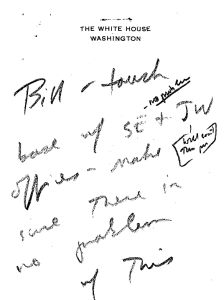 THE WHITE HOUSE
WASHINGTON
Bill – touch
no problem
base w/ SE & JW
offices – make
sure there is
no problem
w/ this